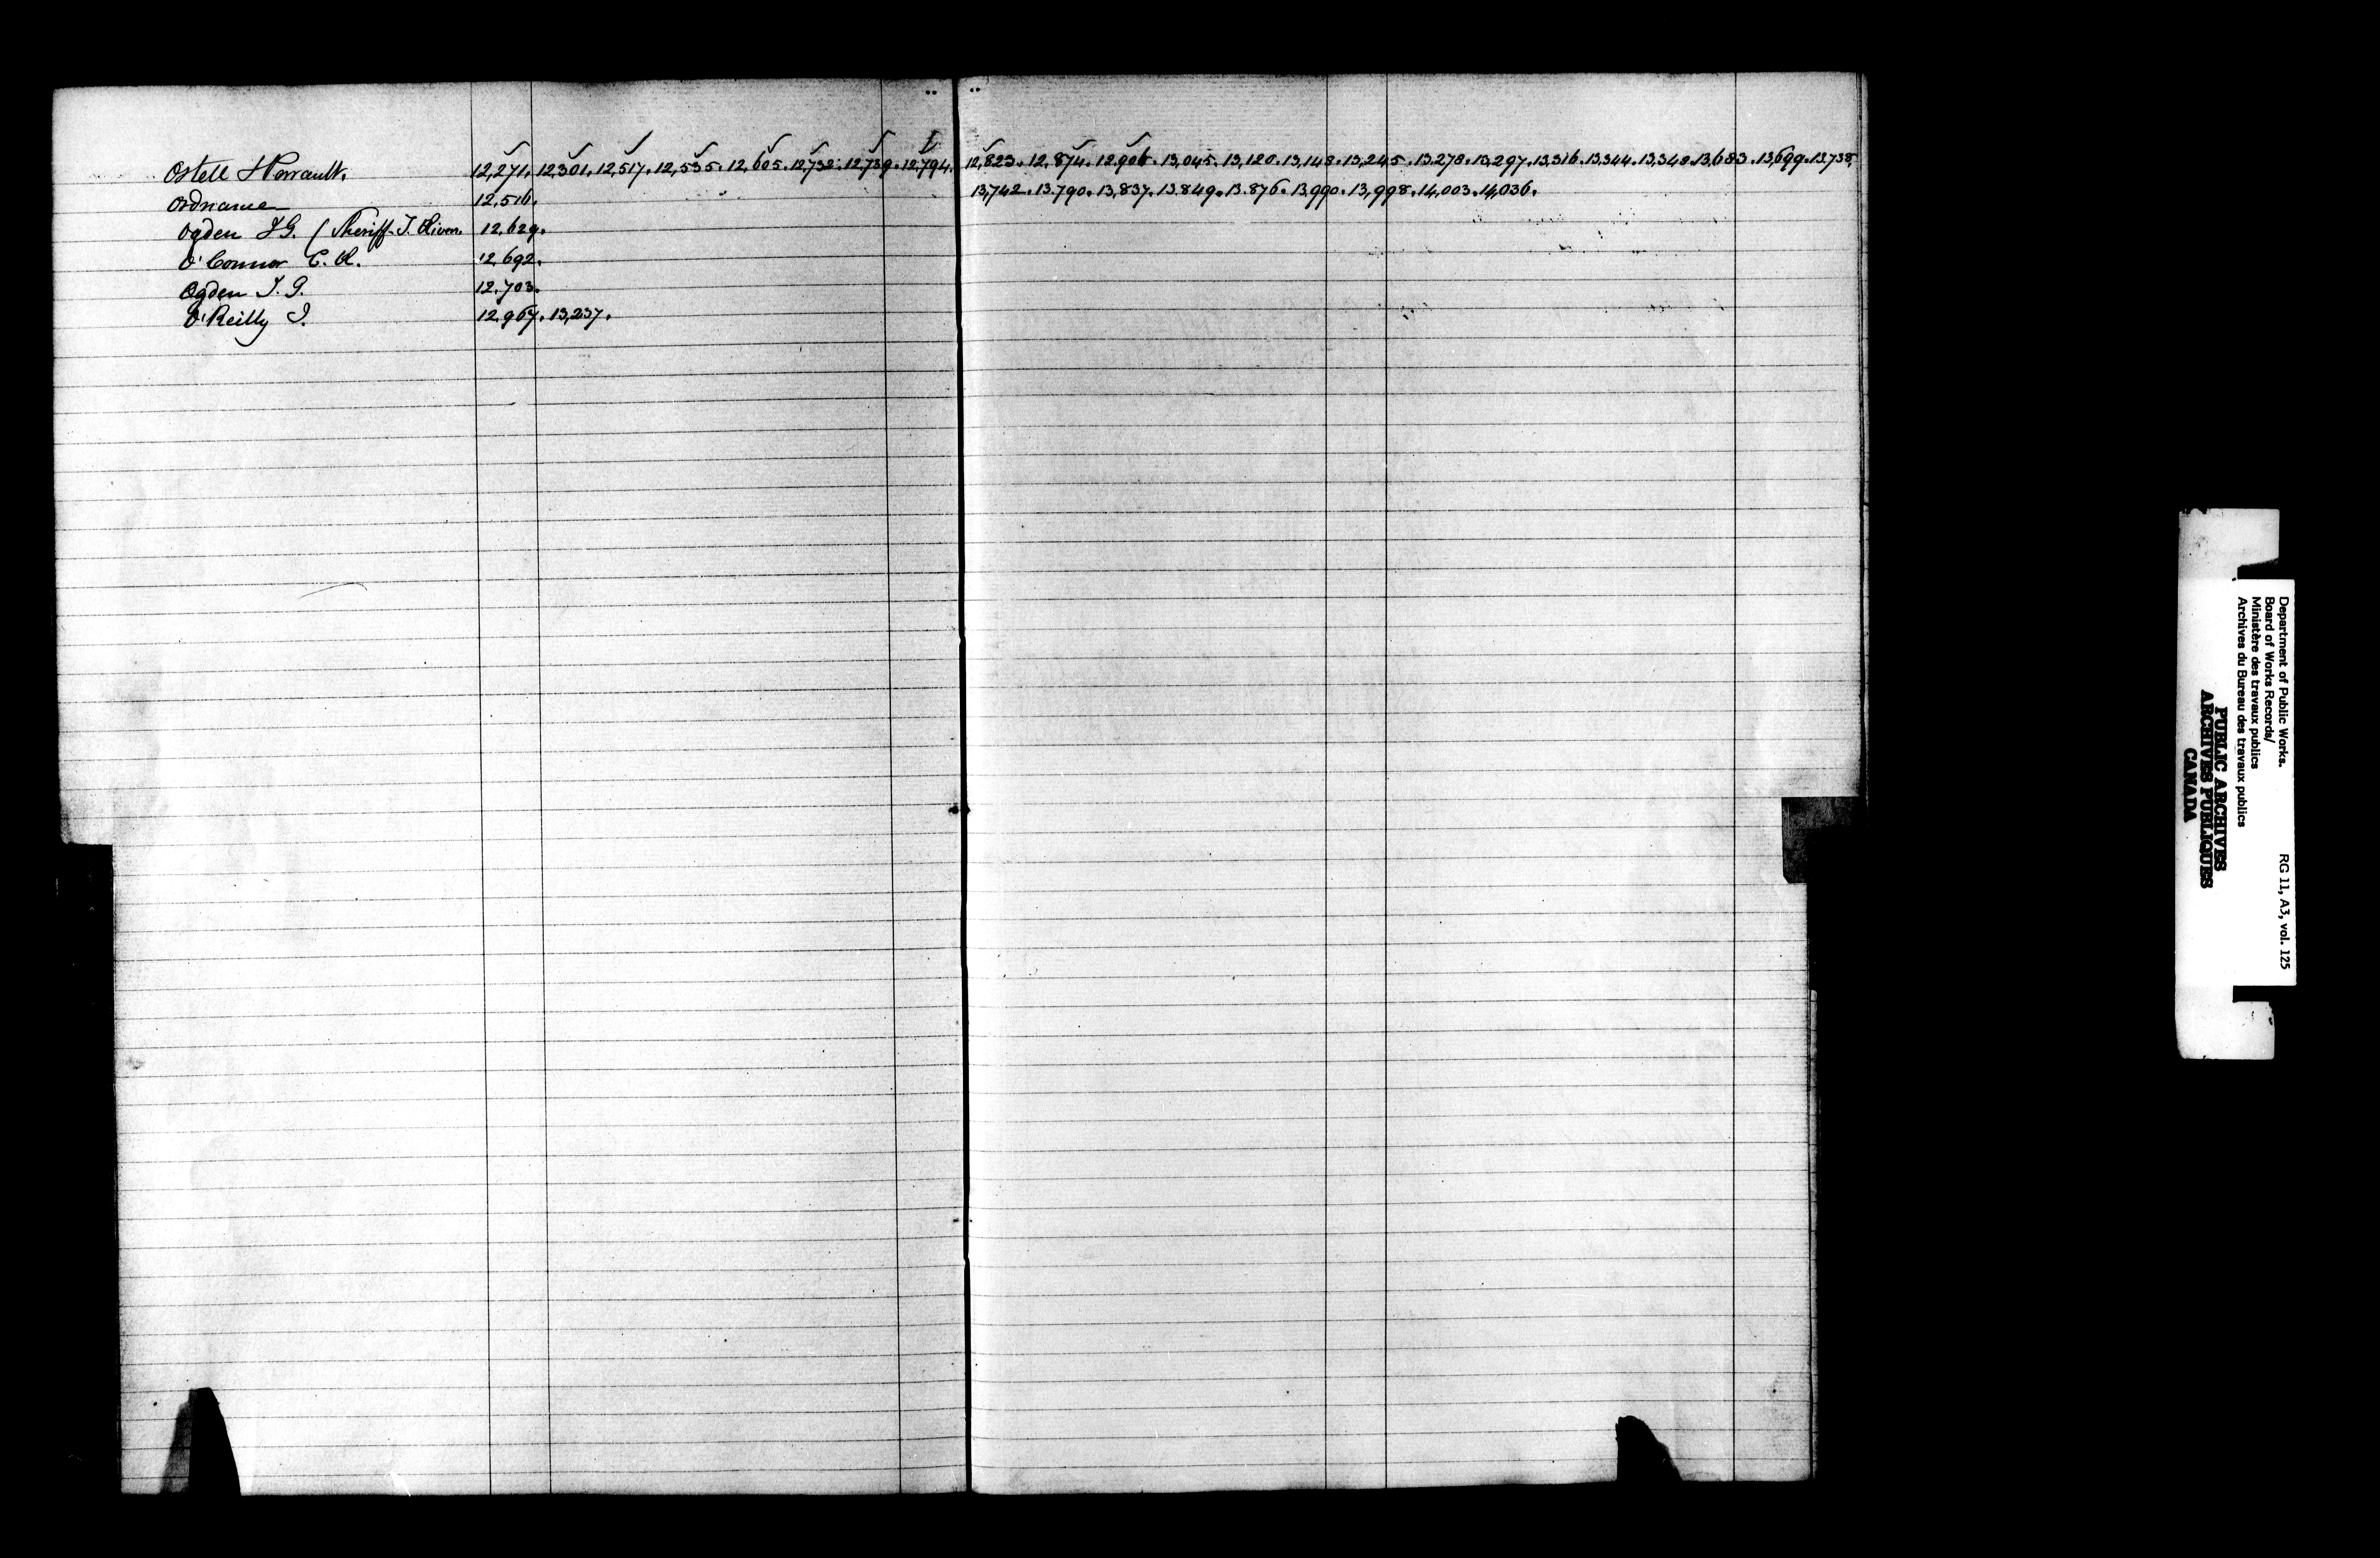 Ostell & Perrault. 12,271. 12,301. 12,517. 12,535. 12,605. 12,732. 12,739. 12,794. 12,823. 12,874. 12,906. 13,045. 13,120. 13,148. 13,245. 13,278. 13,297. 13,316. 13,344. 13,348. 13,683. 13,699. 13,738.
13,742. 13,790. 13,837. 13,849. 13,876. 13,990. 13,998. 14,003. 14,036.
Ordnance 12,516.
Ogden I G. (Sheriff 3. Rivers. 12,629.
O'Connor C. R. 12,692.
Ogden I. G. 12,703.
O'Reilly I. 12,967. 13,237.
Department of Public Works. RG 11, A3, vol. 125
Board of Works Records/
Ministère des travaux publics
Archives du Bureau des travaux publics
PUBLIC ARCHIVES
ARCHIVES PUBLIQUES
CANADA